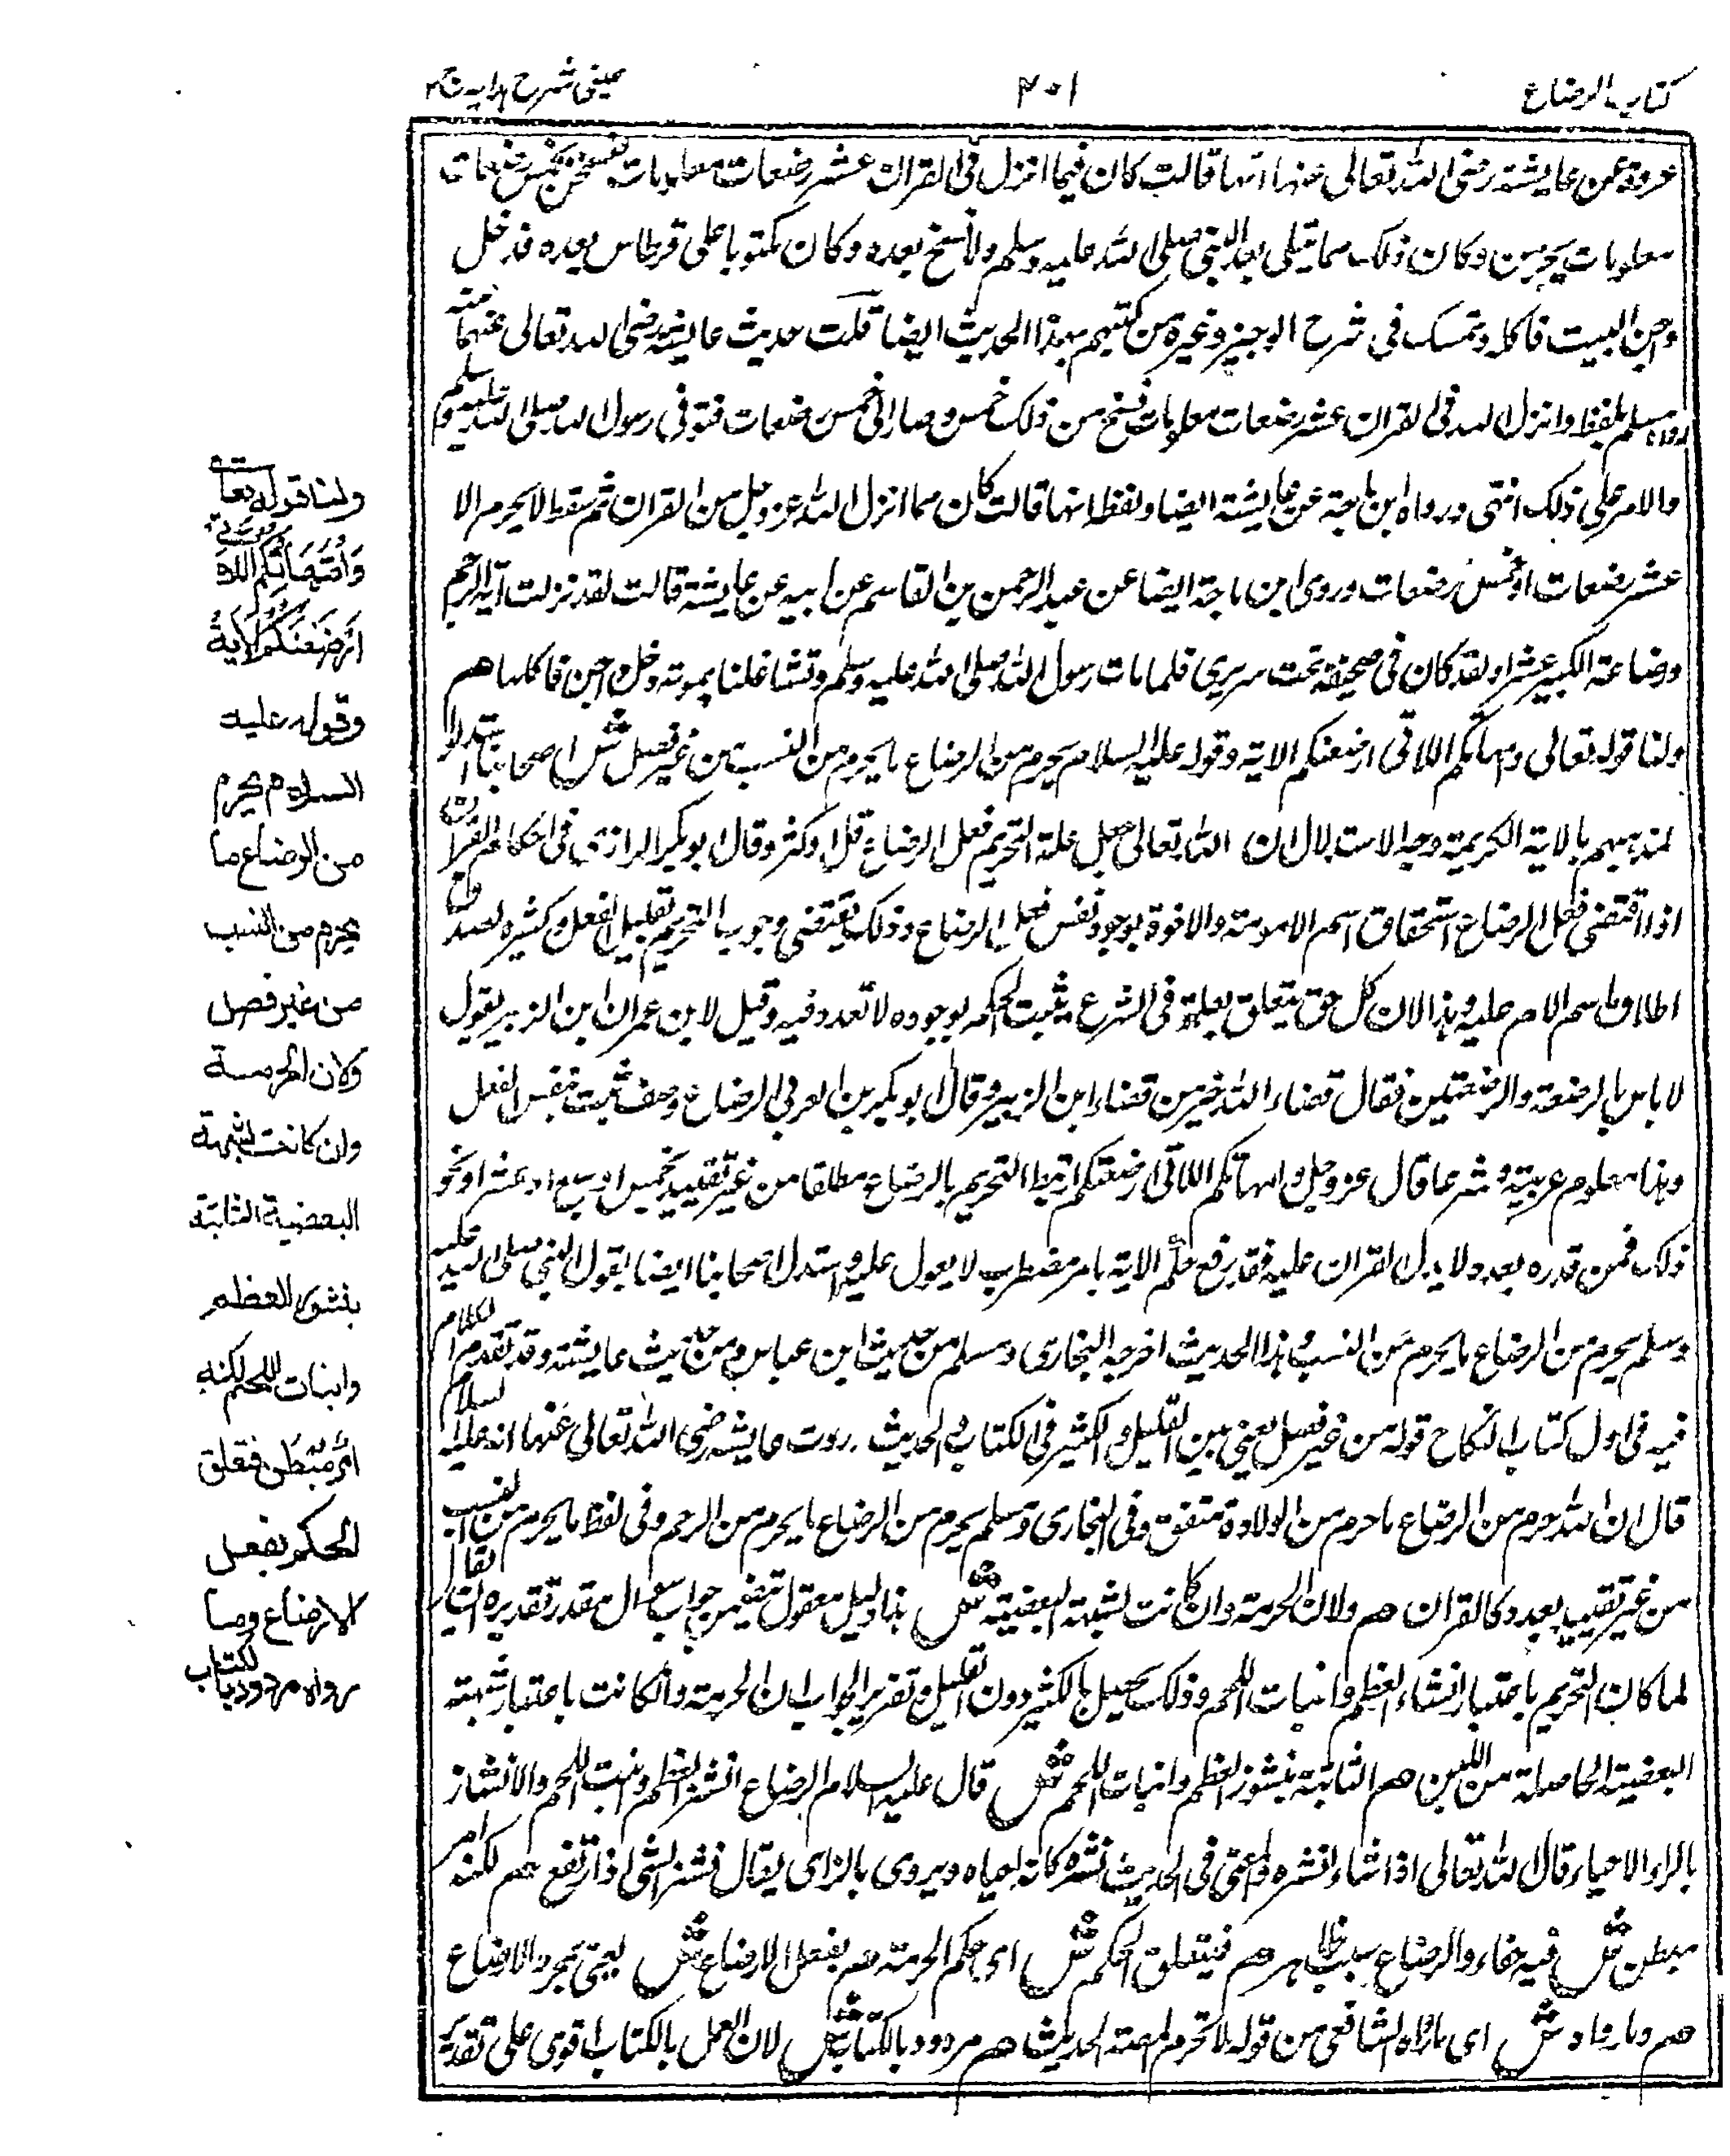 كتاب الرضاع
٢٠١
عينى شرح هدايه ج٢
عروة عن عايشة رضى الله تعالى عنها انها قالت كان فيما انزل فى القران عشر رضعات معلومات نسخن بخمس رضعات
معلومات يحرمن وكان ذلك مما يتلى بعد النبى صلى الله عليه وسلم ولا نسخ بعده وكان مكتوبا على قرطاس بعده فدخل
داجن البيت فاكله وتمسك فى شرح الوجيز وغيره من كتبهم بهذا الحديث ايضا قلت حديث عايشة رضى الله تعالى عنها
رواه مسلم بلفظ وانزل الله فى القران عشر رضعات معلومات فنسخ من ذلك خمس وصار الى خمس رضعات فتوفى رسول الله صلى الله عليه وسلم
والامر على ذلك انتهى ورواه ابن ماجة عن عايشة ايضا ولفظ انها قالت كان مما انزل الله عز وجل من القران ثم سقط لا يحرم الا
عشر رضعات او خمس رضعات وروى ابن ماجة ايضا عن عبد الرحمن بن القاسم عن ابيه عن عايشة قالت لقد نزلت آية الرجم
ورضاعة الكبير عشرا ولقد كان فى صحيفة تحت سريرى فلما مات رسول الله صلى الله عليه وسلم وتشاغلنا بموته دخل داجن فاكلها هم
ولنا قوله تعالى وامهاتكم اللاتى ارضعنكم الاية وقوله عليه السلام يحرم من الرضاع ما يحرم من النسب من غير فصل ش اصحابنا استدلوا
لمذهبهم بالاية الكريمة وجه الاستدلال ان الله تعالى جعل علة التحريم فعل الرضاع قل او كثر وقال ابو بكر الرازى فى احكام القران
اذا اقتضى فعل الرضاع استحقاق اسم الامومة والاخوة بوجود نفس فعل الرضاع وذلك يقتضى وجوب التحريم بقليل الفعل وكثيره لصدق
اطلاق اسم الام عليه وهذا لان كل حق يتعلق بعلة فى الشرع يثبت الحكم بوجوده لا تعدد فيه وقيل لابن عمر ان ابن الزبير يقول
لا باس بالرضعة والرضعتين فقال قضاء الله خير من قضاء ابن الزبير وقال ابو بكر بن العربى الرضاع وصف ثبت بنفس الفعل
وهذا معلوم عربية وشرعا قال عز وجل وامهاتكم اللاتى ارضعنكم ارتبط التحريم بالرضاع مطلقا من غير تقييد بخمس او سبع او عشر او نحو
ذلك فمن قدره بعدد لا يدل القران عليه فقد رفع حكم الاية بامر مضطرب لا يعول عليه واستدل اصحابنا ايضا بقول النبى صلى الله عليه
وسلم يحرم من الرضاع ما يحرم من النسب وهذا الحديث اخرجه البخارى ومسلم من حديث ابن عباس ومن حديث عايشة وقد تقدم الكلام
فيه فى اول كتاب النكاح قوله من غير فصل يعنى بين القليل والكثير فى الكتاب والحديث روت عايشة رضى الله تعالى عنها انه عليه السلام
قال ان الله حرم من الرضاع ما حرم من الولادة متفق وفى البخارى ومسلم يحرم من الرضاع ما يحرم من الرحم وفى لفظ ما يحرم من النسب
من غير تقييد بعدد كالقران هم ولان الحرمة وان كانت لشبهة البعضية ش هذا دليل معقول يتضمن جواب سوال مقدر تقديره ان يقال
لما كان التحريم باعتبار انشاء العظم وانبات اللحم وذلك يحصل بالكثير دون القليل تقرير الجواب ان الحرمة وان كانت باعتبار شبهة
البعضية الحاصلة من اللبن هم الثابتة بنشوز العظم وانبات اللحم ش قال عليه السلام الرضاع انشز العظم وانبت اللحم والانشار
بالراء الاحياء قال الله تعالى اذا شاء انشره والمعنى فى الحديث نشره كانه احياه ويروى بالزاى يقال نشز الشى اذا ارتفع هم لكنه امر
مبطن ش فيه خفاء والرضاع سبب ظاهر هم فيتعلق الحكم ش اى حكم الحرمة هم بفعل الارضاع ش يعنى بمجرد الارضاع
هم وما رواه ش اى ما رواه الشافعى من قوله لا تحرم المصة الحديث هم مردود بالكتاب ش لان العمل بالكتاب اقوى على تقدير
ولنا قوله تعا
وَاُمَّهَاتُكُمُ اللاتى
اَرْضَعْنَكُمْ الآية
وقوله عليه
السلام يحرم
من الرضاع ما
يحرم من النسب
من غير فصل
ولان الحرمة
وان كانت لشبهة
البعضية الثابتة
بنشوز العظم
وانبات اللحم لكنه
امر مُبْطَن فتعلق
الحكم بفعل
الارضاع وما
رواه مردود بالكتاب